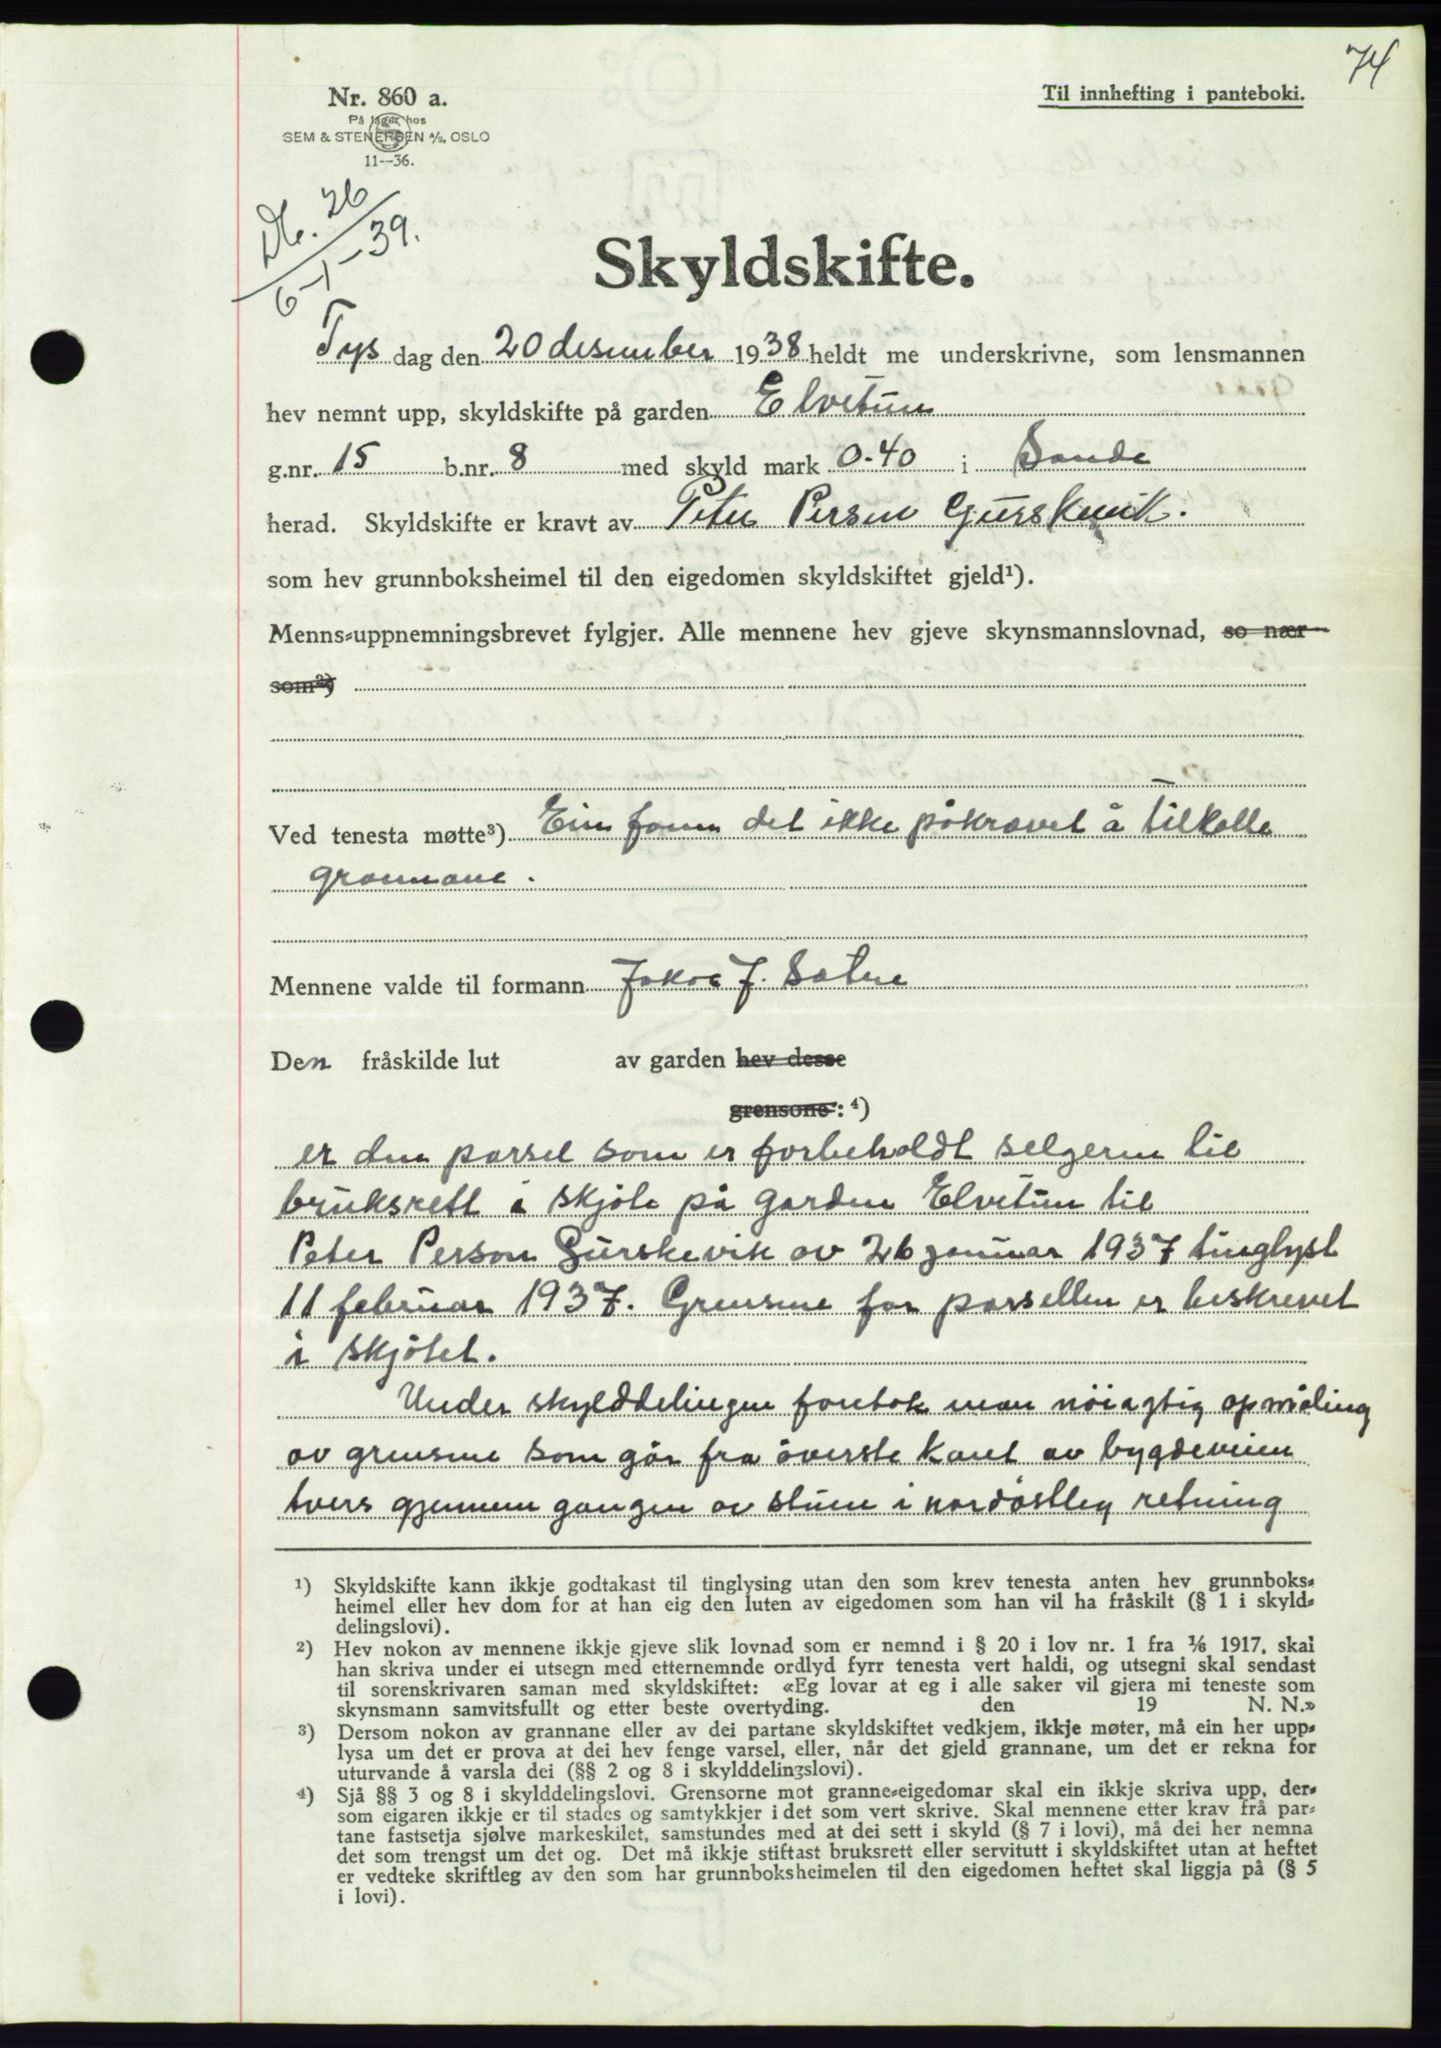 74
Nr. 860 a.
Til innhefting i panteboki.
På lager hos
SEM & STENERSEN A/S, OSLO
11--36.
Db. 26
6-1-39.
Skyldskifte.
Tys dag den 20 desember 1938 heldt me underskrivne, som lensmannen
hev nemnt upp, skyldskifte på garden Elvetun
g.nr. 15 b.nr. 8 med skyld mark 0.40 i Sande
herad. Skyldskifte er kravt av Peter Person Gurskevik.
som hev grunnboksheimel til den eigedomen skyldskiftet gjeld¹).
Menns-uppnemningsbrevet fylgjer. Alle mennene hev gjeve skynsmannslovnad, so nær
som²)
Ved tenesta møtte³) Ein fann det ikke påkravet å tilkalle
grannane.
Mennene valde til formann Jakob J. Sætre
Den fråskilde lut av garden hev desse
grensone: ⁴)
er den parsel som er forbeholdt selgeren til
bruksrett i skjøte på garden Elvetun til
Peter Person Gurskevik av 26 januar 1937 tinglyst
11 februar 1937. Grensene for parsellen er beskrevet
i skjøtet.
Under skylddelingen foretok man nöiagtig opmåling
av grensene som går fra överste kant av bygdeveien
tvers gjennem gangen av stuen i nordöstleg retning
¹) Skyldskifte kann ikkje godtakast til tinglysing utan den som krev tenesta anten hev grunnboks-
heimel eller hev dom for at han eig den luten av eigedomen som han vil ha fråskilt (§ 1 i skyld-
delingslovi).
²) Hev nokon av mennene ikkje gjeve slik lovnad som er nemnd i § 20 i lov nr. 1 fra 1/6 1917, skal
han skriva under ei utsegn med etternemnde ordlyd fyrr tenesta vert haldi, og utsegni skal sendast
til sorenskrivaren saman med skyldskiftet: «Eg lovar at eg i alle saker vil gjera mi teneste som
skynsmann samvitsfullt og etter beste overtyding. den 19 N. N.»
³) Dersom nokon av grannane eller av dei partane skyldskiftet vedkjem, ikkje møter, må ein her upp-
lysa um det er prova at dei hev fenge varsel, eller, når det gjeld grannane, um det er rekna for
uturvande å varsla dei (§§ 2 og 8 i skylddelingslovi).
⁴) Sjå §§ 3 og 8 i skylddelingslovi. Grensorne mot granne-eigedomar skal ein ikkje skriva upp, der-
som eigaren ikkje er til stades og samtykkjer i det som vert skrive. Skal mennene etter krav frå par-
tane fastsetja sjølve markeskilet, samstundes med at dei sett i skyld (§ 7 i lovi), må dei her nemna
det som trengst um det og. Det må ikkje stiftast bruksrett eller servitutt i skyldskiftet utan at heftet
er vedteke skriftleg av den som har grunnboksheimelen til den eigedomen heftet skal liggja på (§ 5
i lovi).